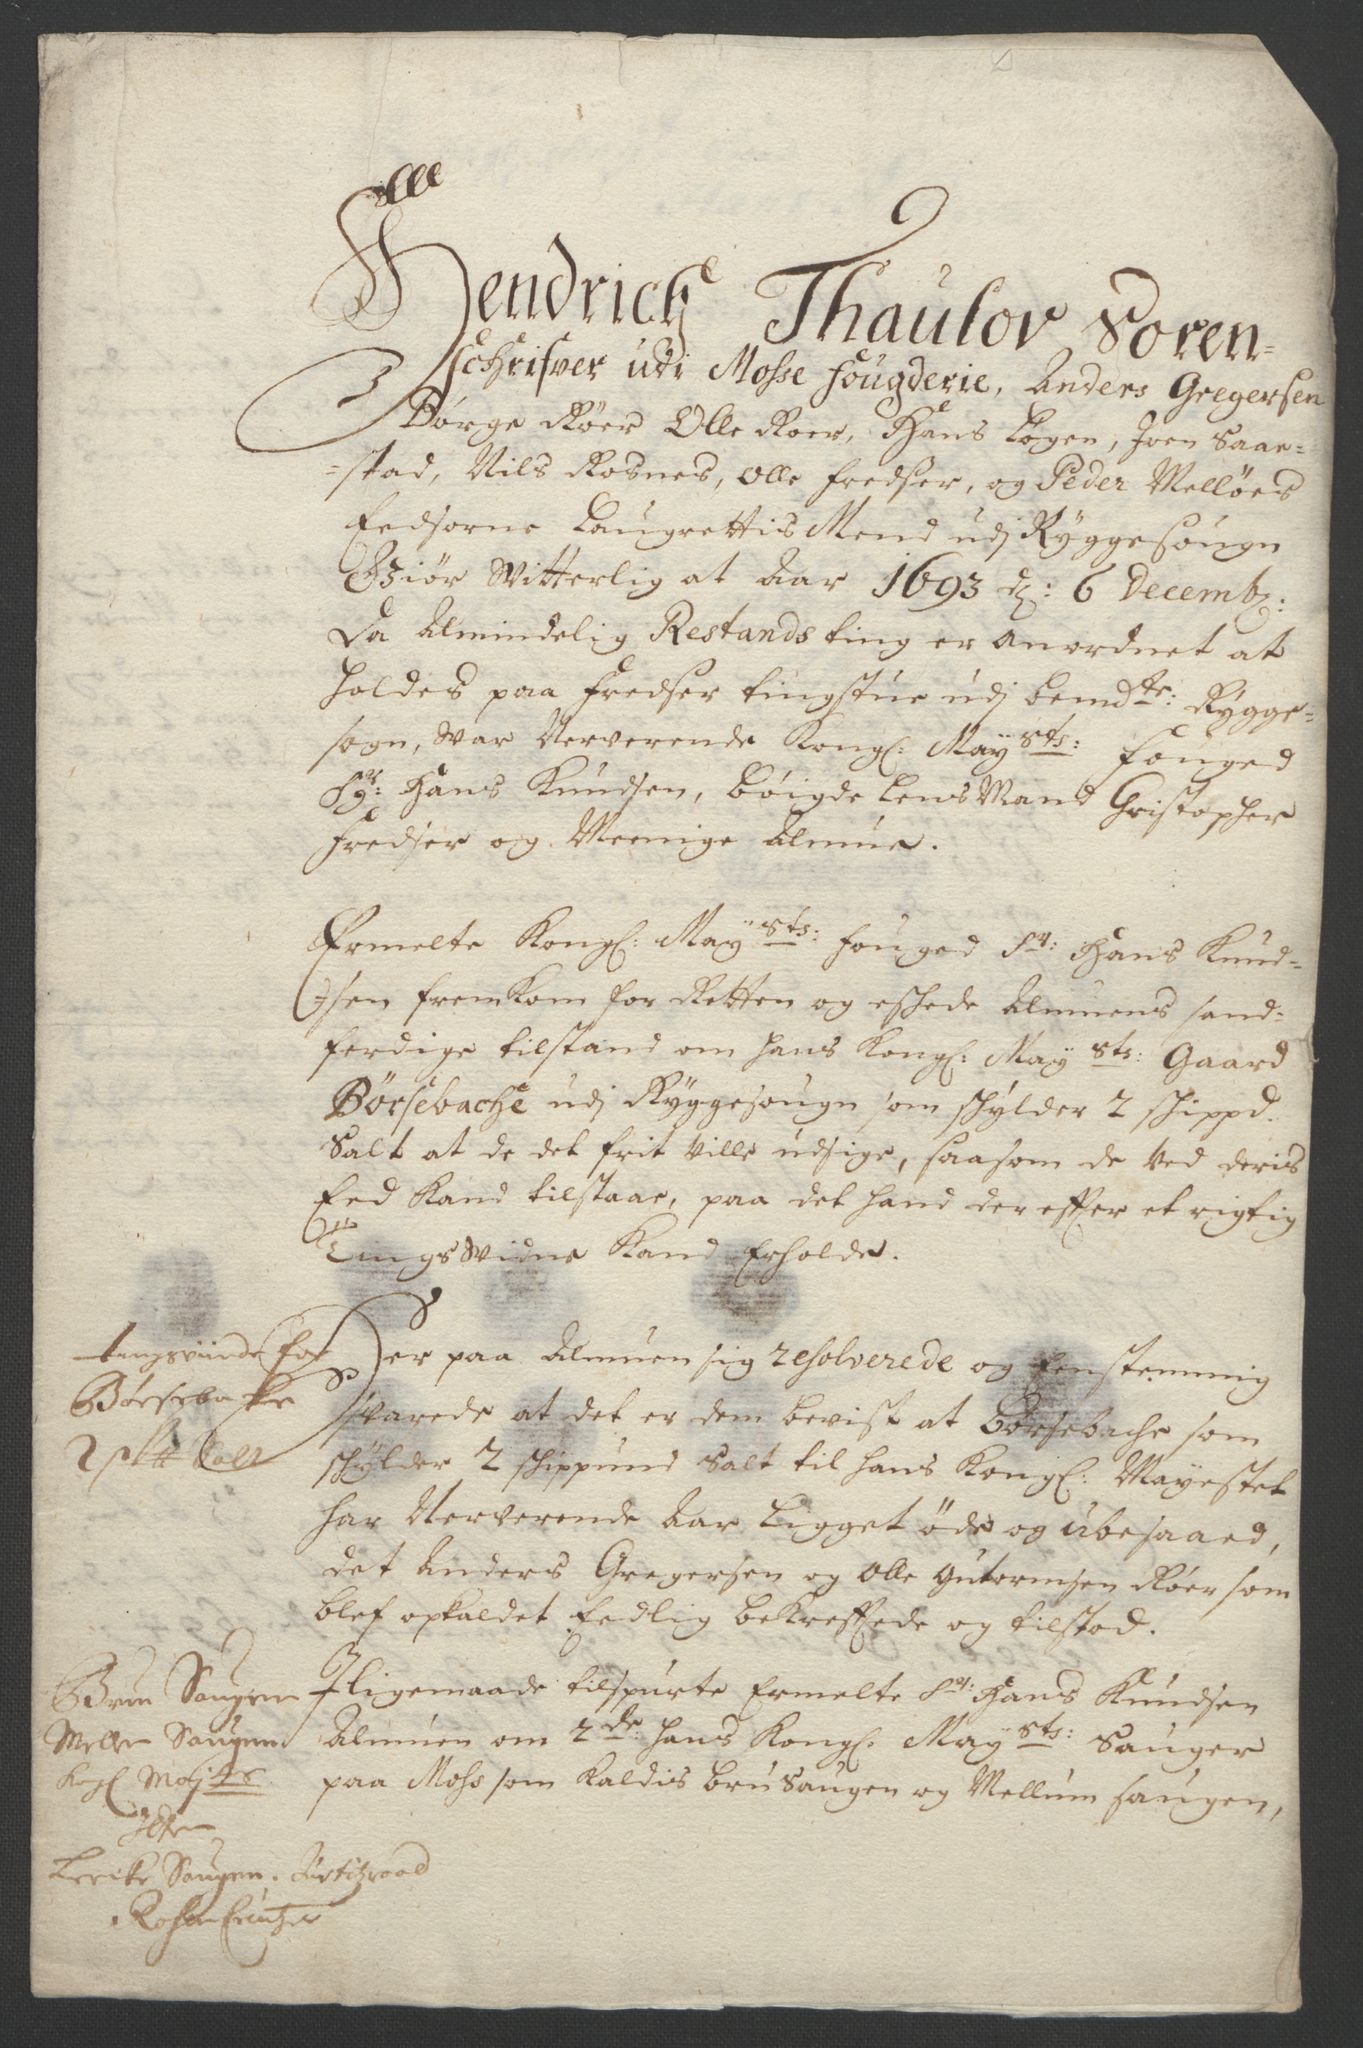 Hendrich Thaulov Soren=
schrifver udi Mosse fougderie, Anders Gregersen
Børge Røer Olle Roer, Hans Løgen, Joen Saae=
=stad, Nils Rosnes, Olle Fredser, og Peder Melløes
Eedsorne Laugrettis Mend udj Ryggesougn
Giør Witterlig at Aar 1693 dz: 6 Decembr:
Da Almindelig Restands ting er anordnet at
holdes paa Fredser tingstue udj bemdte: Rygge=
sogn, War Nerverende Kongl: Maÿsts: Fouged
Sr: Hans Knudsen, bøigde LensMand Christopher
Fredser og Meenige Almue.
Ermelte Kongl: Maÿsts: fouged Sr: Hans Knud=
=sen fremkom for Retten og eschede Almuens sand=
ferdige tilstand om hans Kongl: Maÿsts: Gaard
Børsebache udj Ryggesougn som schylder 2 schippd.
Salt at de det frit Ville udsige, saasom de Ved deris
Eed Kand tilstaae, paa det hand der effter et rigtig
TingsWidne Kand Erholde.
Der paa Almuen sig resolverede og Eenstemmig
svarede at det er dem bevist at Børsebache som
schylder 2 schippund Salt til hans Kongl: Mayestet
har Nerverende Aar Ligget øde og ubesaaed,
det Anders Gregersen og Olle Gutormsen Røer som
blef opkaldet Eedlig bekreffede og tilstod.
Tingsvinde for
Børsebacke
2 sk℔ Salt
Iligemaade tilspurte Ermelte Sr: Hans Knudsen
Almuen om 2de: hans Kongl: Maÿsts: Sauger
paa Moss som Kaldis bruSaugen og Mellum saugen,
Brue Saugen
Mellm Saugen
Kogl Mayts
Item
Lercke Saugen. Justitzraad
Rosen Creutzer